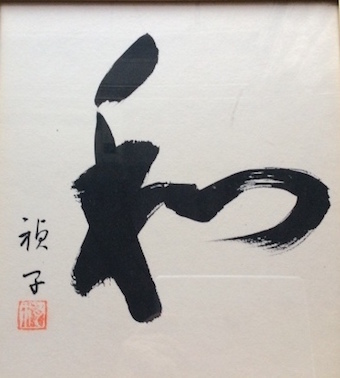 和
禎子